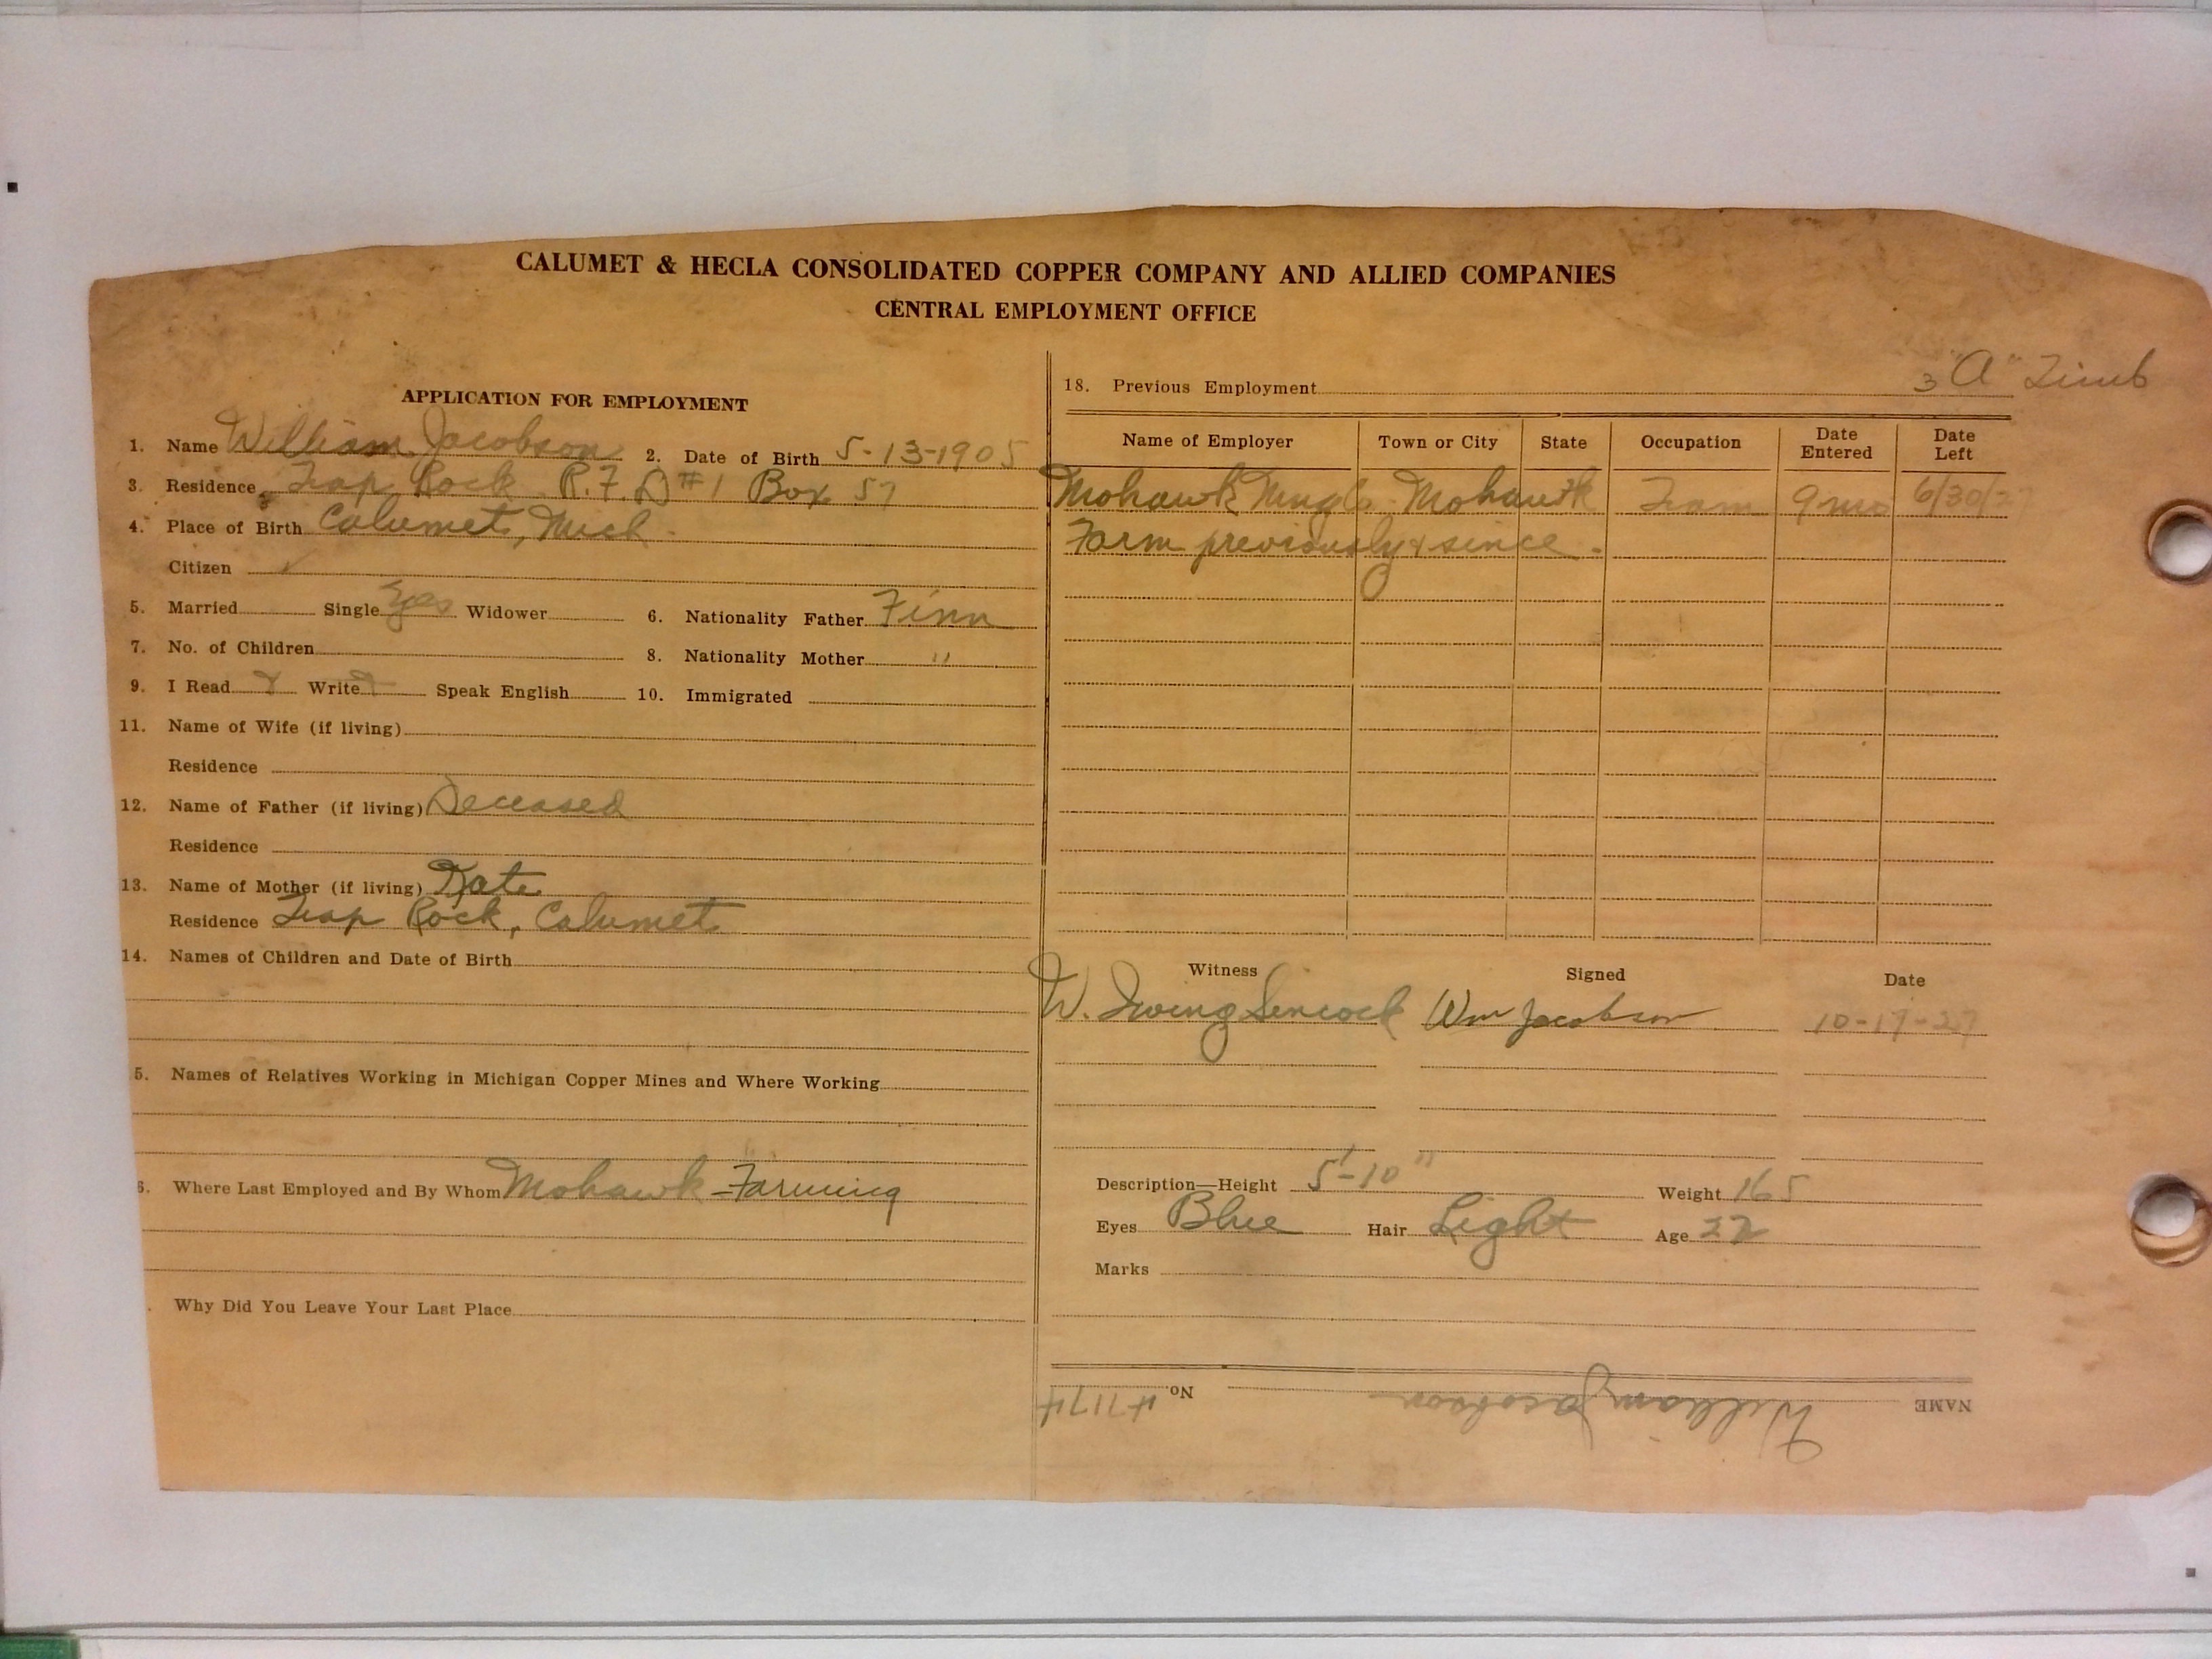 CALUMET & HECLA CONSOLIDATED COPPER COMPANY AND ALLIED COMPANIES
CENTRAL EMPLOYMENT OFFICE
APPLICATION FOR EMPLOYMENT
1. Name William Jacobson 2. Date of Birth 5-13-1905
3. Residence Trap Rock R.F.D #1 Box 57
4. Place of Birth Calumet, Mich.
Citizen ✓
5. Married Single Yes Widower 6. Nationality Father Finn
7. No. of Children 8. Nationality Mother "
9. I Read Write Speak English 10. Immigrated
11. Name of Wife (if living)
Residence
12. Name of Father (if living) Deceased
Residence
13. Name of Mother (if living) Kate
Residence Trap Rock, Calumet
14. Names of Children and Date of Birth
5. Names of Relatives Working in Michigan Copper Mines and Where Working
6. Where Last Employed and By Whom Mohawk - Farming
Why Did You Leave Your Last Place
3 "A" Timb
18. Previous Employment
Name of Employer Town or City State Occupation Date Entered Date Left
Mohawk Mng Co. Mohawk Tram 9 mo 6/30/27
Farm previously & since.
Witness Signed Date
W. Irving Wm Jacobson 10-17-27
Description—Height 5'-10" Weight 165
Eyes Blue Hair Light Age 22
Marks
NAME William Jacobson No. 47174